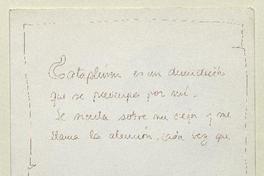 es un duendecito
que se preocupa por mí.
Se sienta sobre mi ceja y me
llama la atención, cada vez que